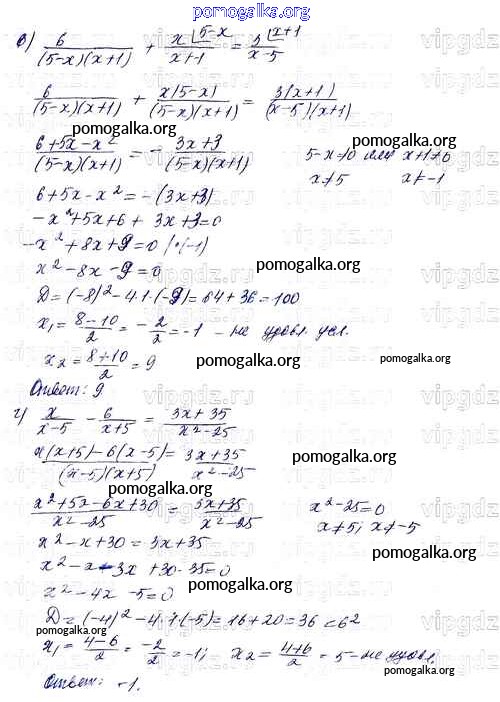 pomogalka.org
в) 6/((5-x)(x+1)) + x/(x+1) |5-x = 3/(x-5) |x+1
6/((5-x)(x+1)) + x(5-x)/((5-x)(x+1)) = 3(x+1)/((x-5)(x+1))
pomogalka.org
(6+5x-x²)/((5-x)(x+1)) = - (3x+3)/((5-x)(x+1)) 5-x≠0 или x+1≠0
pomogalka.org
x≠5 x≠-1
6+5x-x² = -(3x+3)
-x²+5x+6+3x+3=0
-x²+8x+9=0 |·(-1)
x²-8x-9=0 pomogalka.org
D=(-8)²-4·1·(-9)=64+36=100
x₁=(8-10)/2=-2/2=-1 - не удовл. усл.
x₂=(8+10)/2=9 pomogalka.org pomogalka.org
Ответ: 9
г) x/(x-5) - 6/(x+5) = (3x+35)/(x²-25)
pomogalka.org
(x(x+5)-6(x-5))/((x-5)(x+5)) = (3x+35)/(x²-25)
pomogalka.org
pomogalka.org
(x²+5x-6x+30)/(x²-25) = (3x+35)/(x²-25) x²-25=0
x≠5; x≠-5
x²-x+30=3x+35
pomogalka.org
x²-x-3x+30-35=0
x²-4x-5=0 pomogalka.org
D=(-4)²-4·1·(-5)=16+20=36=6²
pomogalka.org
x₁=(4-6)/2=-2/2=-1; x₂=(4+6)/2=5-не удовл.
pomogalka.org
Ответ: -1.
vipgdz.ru